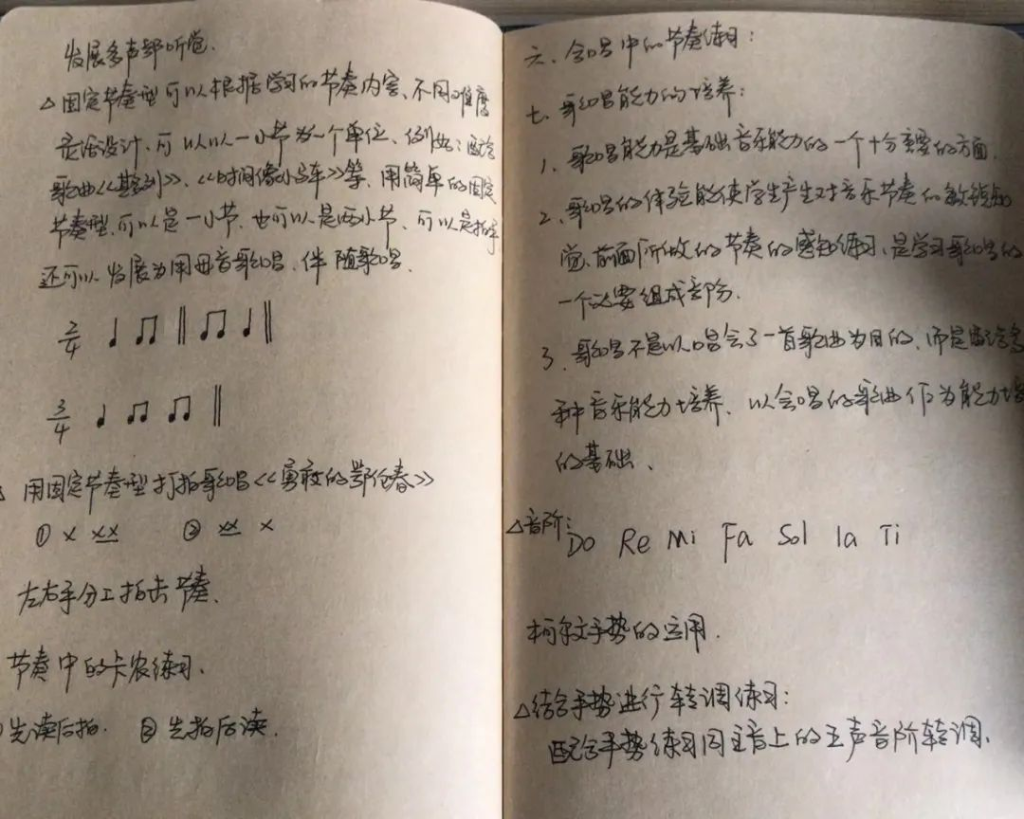 发展多声部听觉.
△固定节奏型可以根据学习的节奏内容、不同难度
灵活设计、可以以一小节为一个单位、例如：配合
歌曲<<其多列>>、<<时间像小马车>>等、用简单的固定
节奏型、可以是一小节、也可以是两小节、可以是拍手
还可以发展为用母音歌唱、伴随歌唱.
2/4 ♩ ♫ ‖ ♫ ♩ ‖
3/4 ♩ ♫ ♫ ‖
用固定节奏型打拍歌唱<<勇敢的鄂伦春>>
① × ×× ② ×× ×
左右手分工拍击节奏.
节奏中的卡农练习.
①先读后拍. ② 先拍后读.
六、合唱中的节奏练习：
七、歌唱能力的培养：
1、歌唱能力是基础音乐能力的一个十分重要的方面.
2、歌唱的体验能使学生产生对音乐节奏的敏锐知
觉、前面所做的节奏的感知练习、是学习歌唱的
一个必要组成部分.
3、歌唱不是以唱会了一首歌曲为目的、而是
种音乐能力培养、以会唱的歌曲作为能力培
的基础、
△音阶：Do Re Mi Fa Sol la Ti
柯尔文手势的运用.
△结合手势进行转调练习：
配合手势练习同主音上的五声音阶转调.